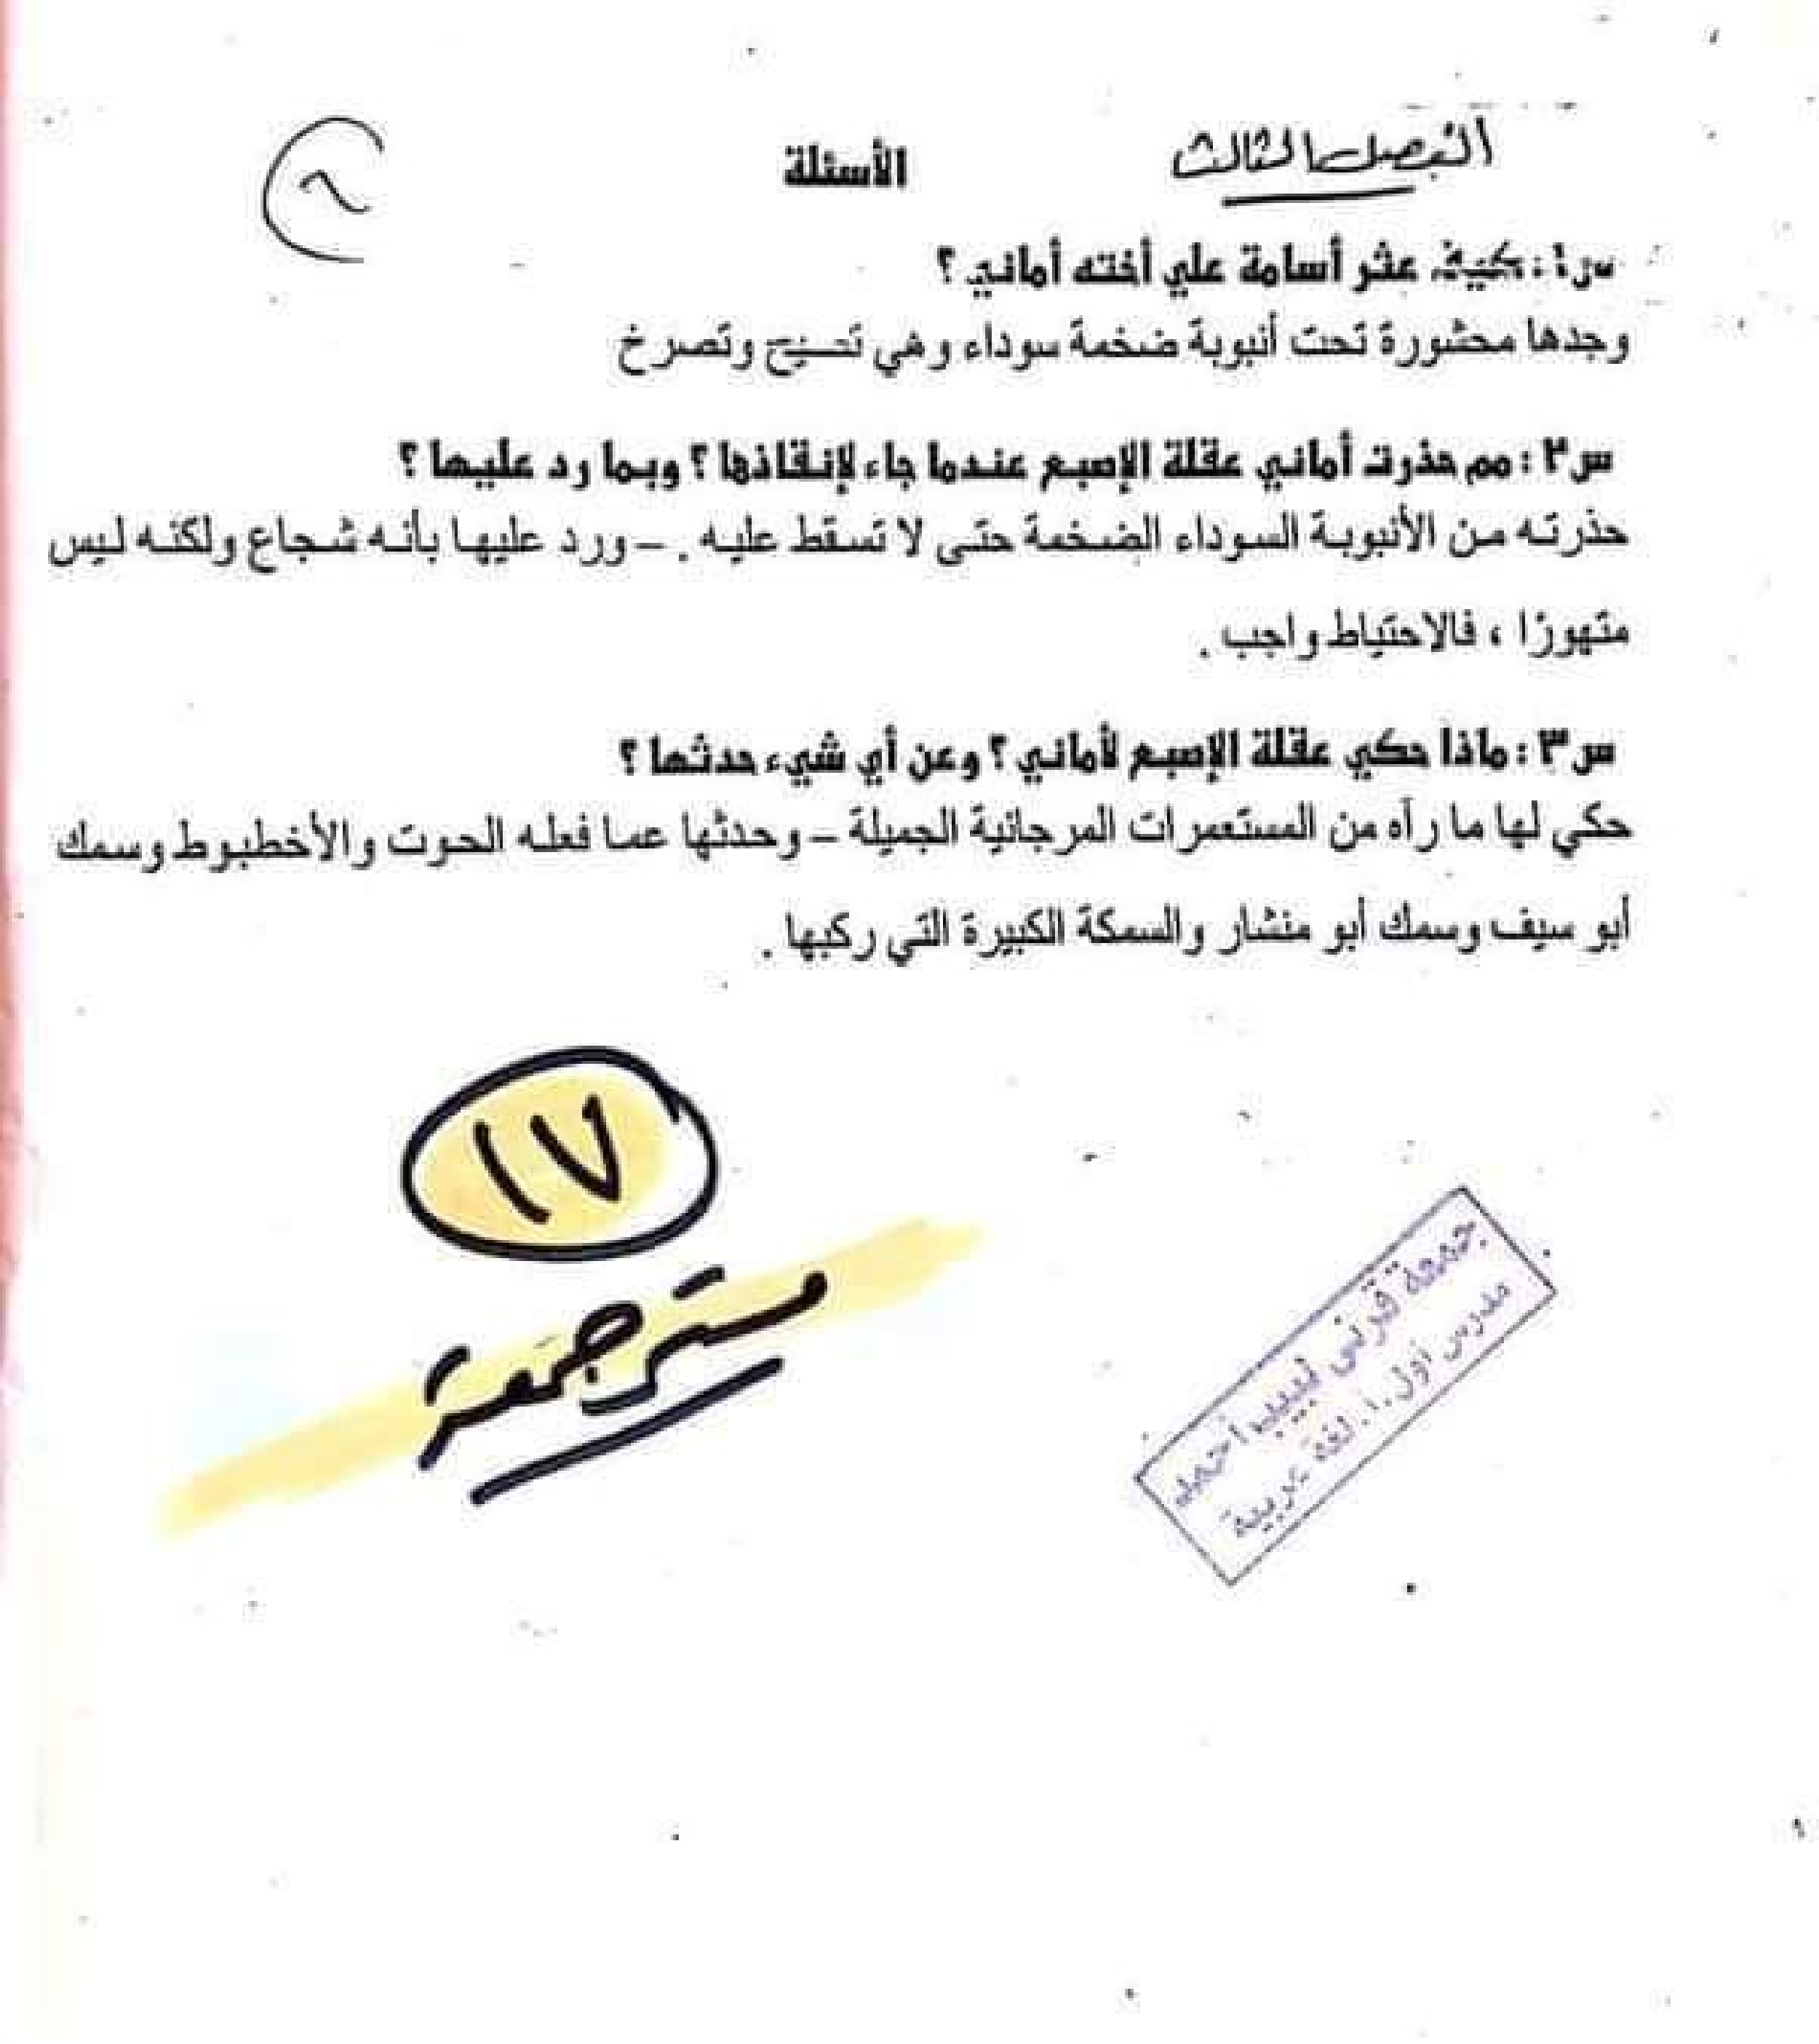 الفصل الثالث
الأسئلة
س١: كيف عثر أسامة علي أخته أماني ؟
وجدها محشورة تحت أنبوبة ضخمة سوداء وهي تصيح وتصرخ
س٢ : مم حذرت أماني عقلة الإصبع عندما جاء لإنقاذها ؟ وبما رد عليها ؟
حذرته من الأنبوبة السوداء الضخمة حتى لا تسقط عليه . – ورد عليها بأنه شجاع ولكنه ليس
متهورًا ، فالاحتياط واجب .
س٣ : ماذا حكي عقلة الإصبع لأماني ؟ وعن أي شيء حدثها ؟
حكي لها ما رآه من المستعمرات المرجانية الجميلة – وحدثها عما فعله الحوت والأخطبوط وسمك
أبو سيف وسمك أبو منشار والسمكة الكبيرة التي ركبها .
١٧
مستر جمعة
جمعة قرني لبيب أحمد
مدرس أول .أ. لغة عربية